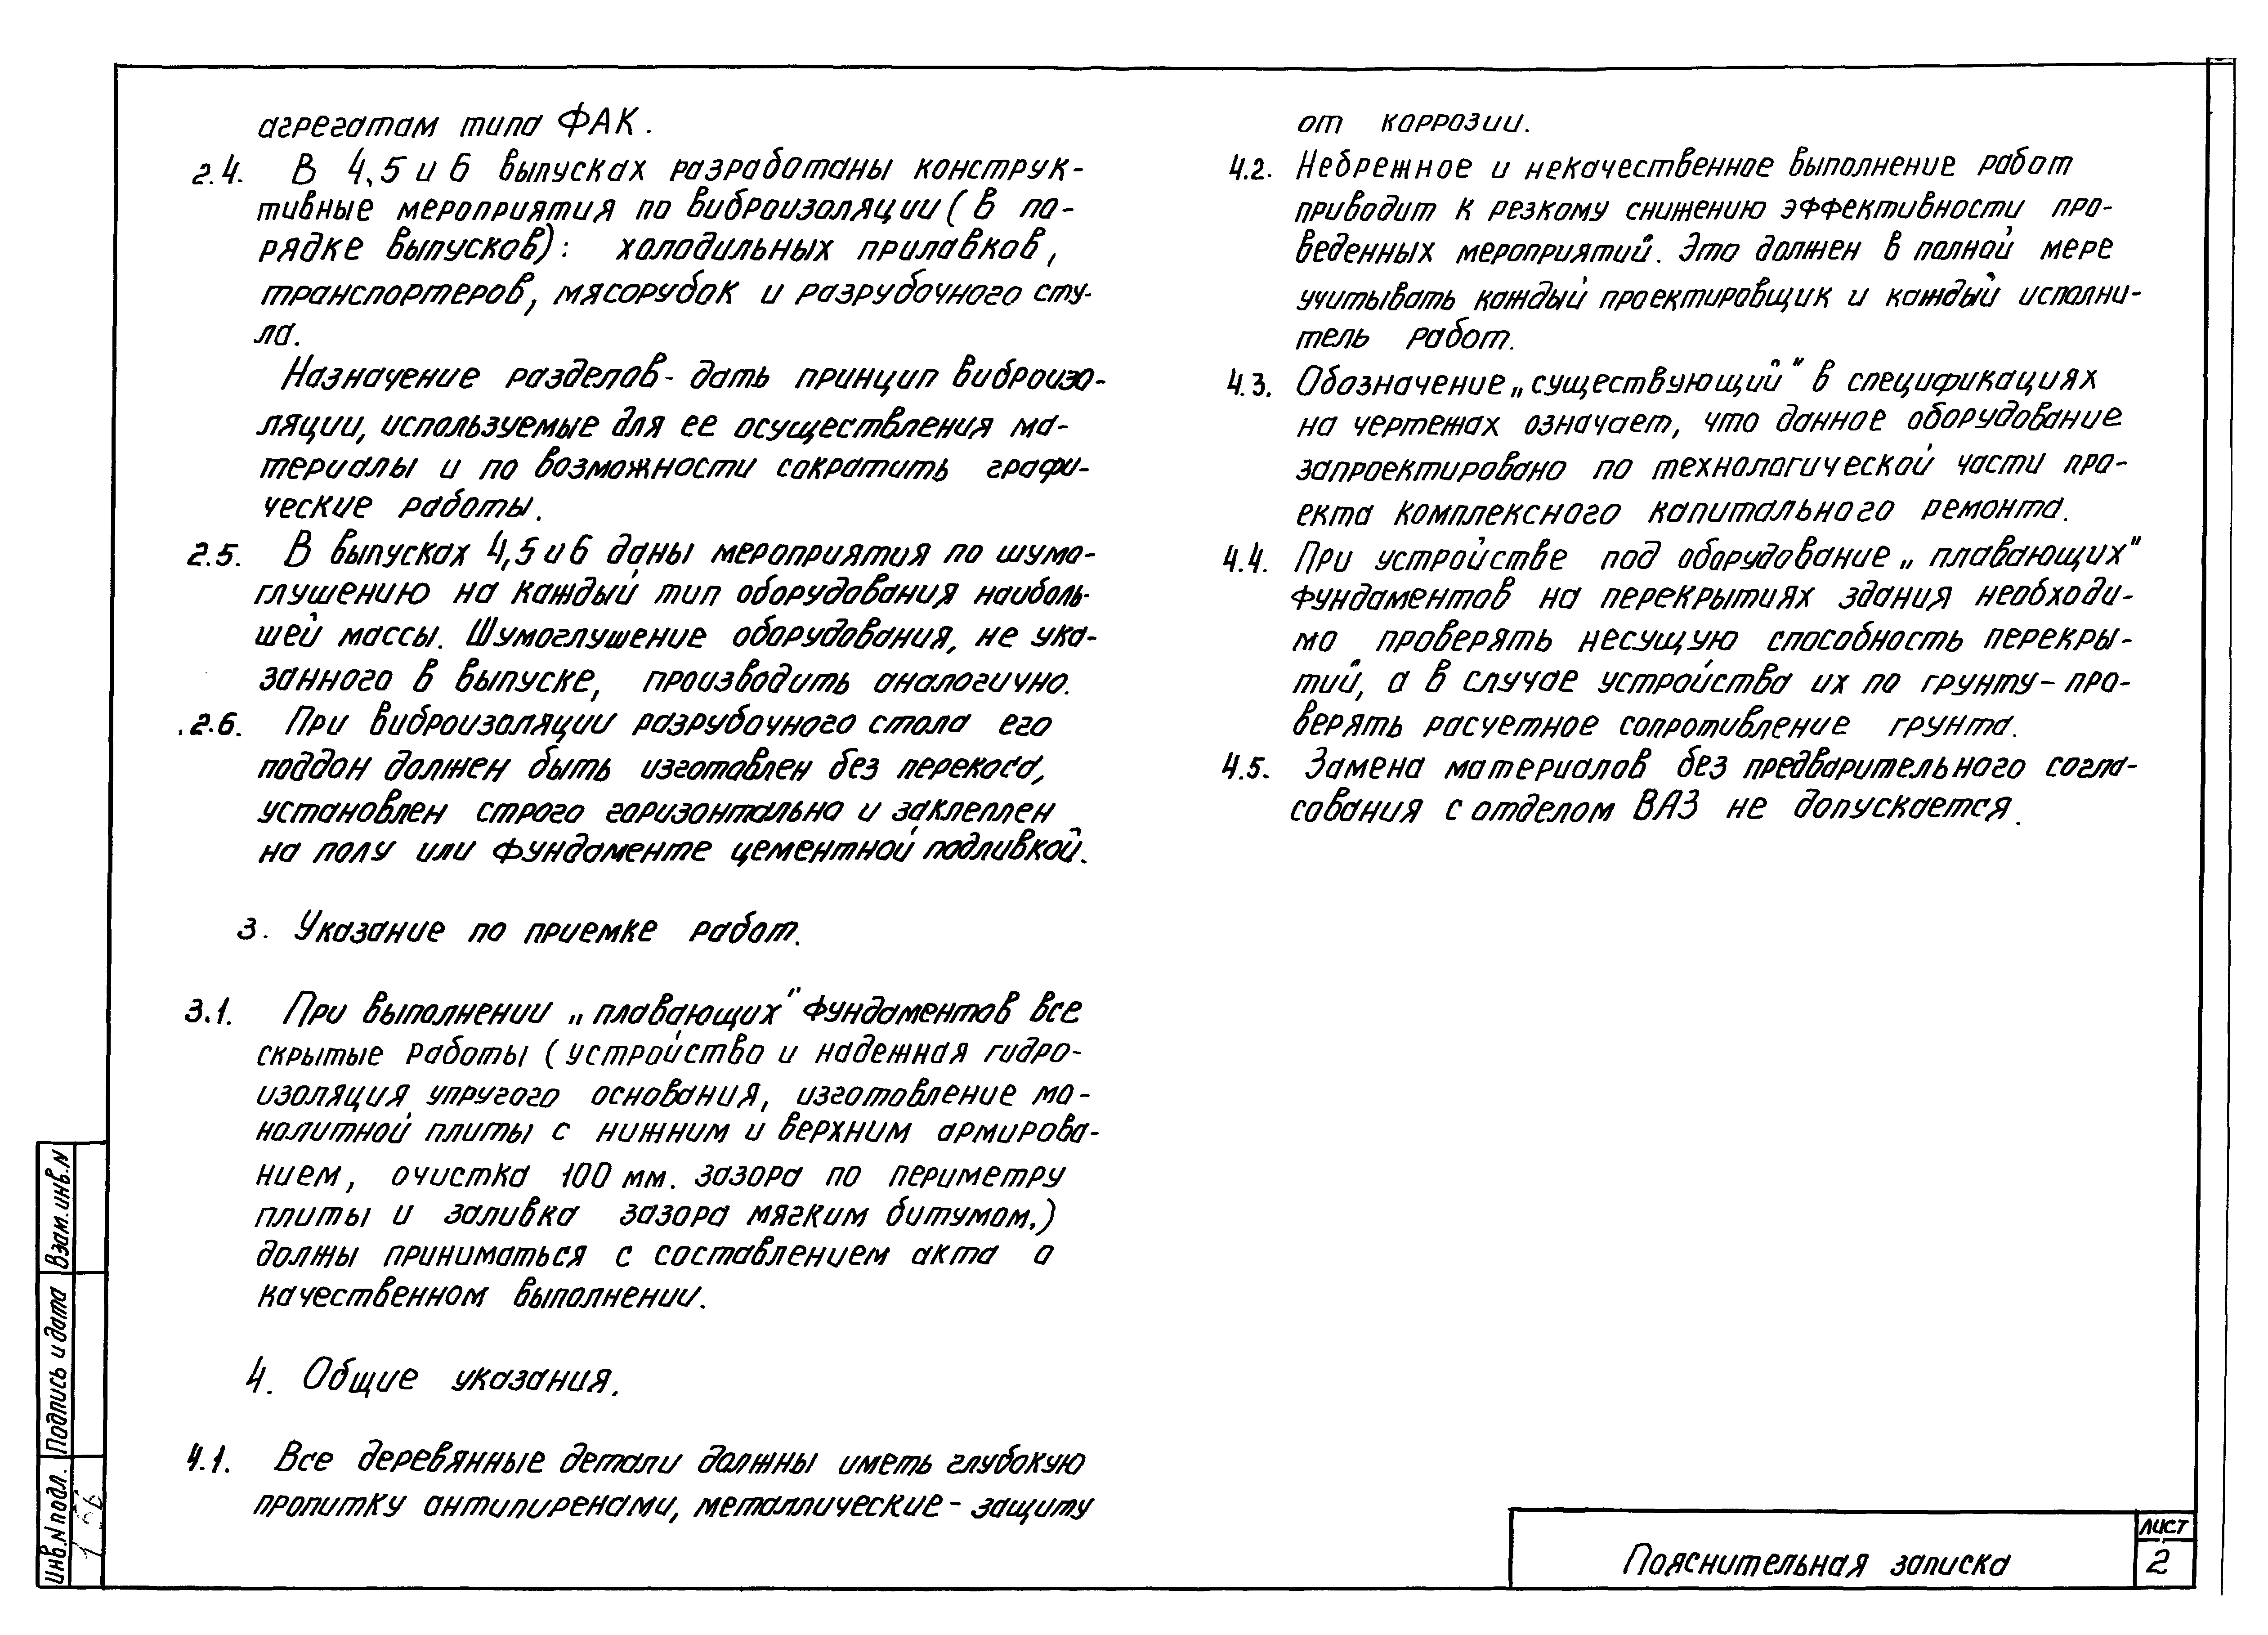 агрегатам типа ФАК.
2.4. В 4,5 и 6 выпусках разработаны конструк-
тивные мероприятия по виброизоляции (в по-
рядке выпусков): холодильных прилавков,
транспортеров, мясорубок и разрубочного сту-
ла.
Назначение разделов - дать принцип виброизо-
ляции, используемые для ее осуществления ма-
териалы и по возможности сократить графи-
ческие работы.
2.5. В выпусках 4,5 и 6 даны мероприятия по шумо-
глушению на каждый тип оборудования наиболь-
шей массы. Шумоглушение оборудования, не ука-
занного в выпуске, производить аналогично.
2.6. При виброизоляции разрубочного стола его
поддон должен быть изготовлен без перекоса,
установлен строго горизонтально и закреплен
на полу или фундаменте цементной подливкой.
3. Указание по приемке работ.
3.1. При выполнении „плавающих" фундаментов все
скрытые работы (устройство и надежная гидро-
изоляция упругого основания, изготовление мо-
нолитной плиты с нижним и верхним армирова-
нием, очистка 100 мм. зазора по периметру
плиты и заливка зазора мягким битумом.)
должы приниматься с составлением акта о
качественном выполнении.
4. Общие указания.
4.1. Все деревянные детали должны иметь глубокую
пропитку антипиренами, металлические - защиту
от коррозии.
4.2. Небрежное и некачественное выполнение работ
приводит к резкому снижению эффективности про-
веденных мероприятий. Это должен в полной мере
учитывать каждый проектировщик и каждый исполни-
тель работ.
4.3. Обозначение „существующий" в спецификациях
на чертежах означает, что данное оборудование
запроектировано по технологической части про-
екта комплексного капитального ремонта.
4.4. При устройстве под оборудование „плавающих"
фундаментов на перекрытиях здания необходи-
мо проверять несущую способность перекры-
тий, а в случае устройства их по грунту - про-
верять расчетное сопротивление грунта.
4.5. Замена материалов без предварительного согла-
сования с отделом ВАЗ не допускается.
Взам. инв. N
Подпись и дата
Инв. N подл.
Пояснительная записка
лист
2